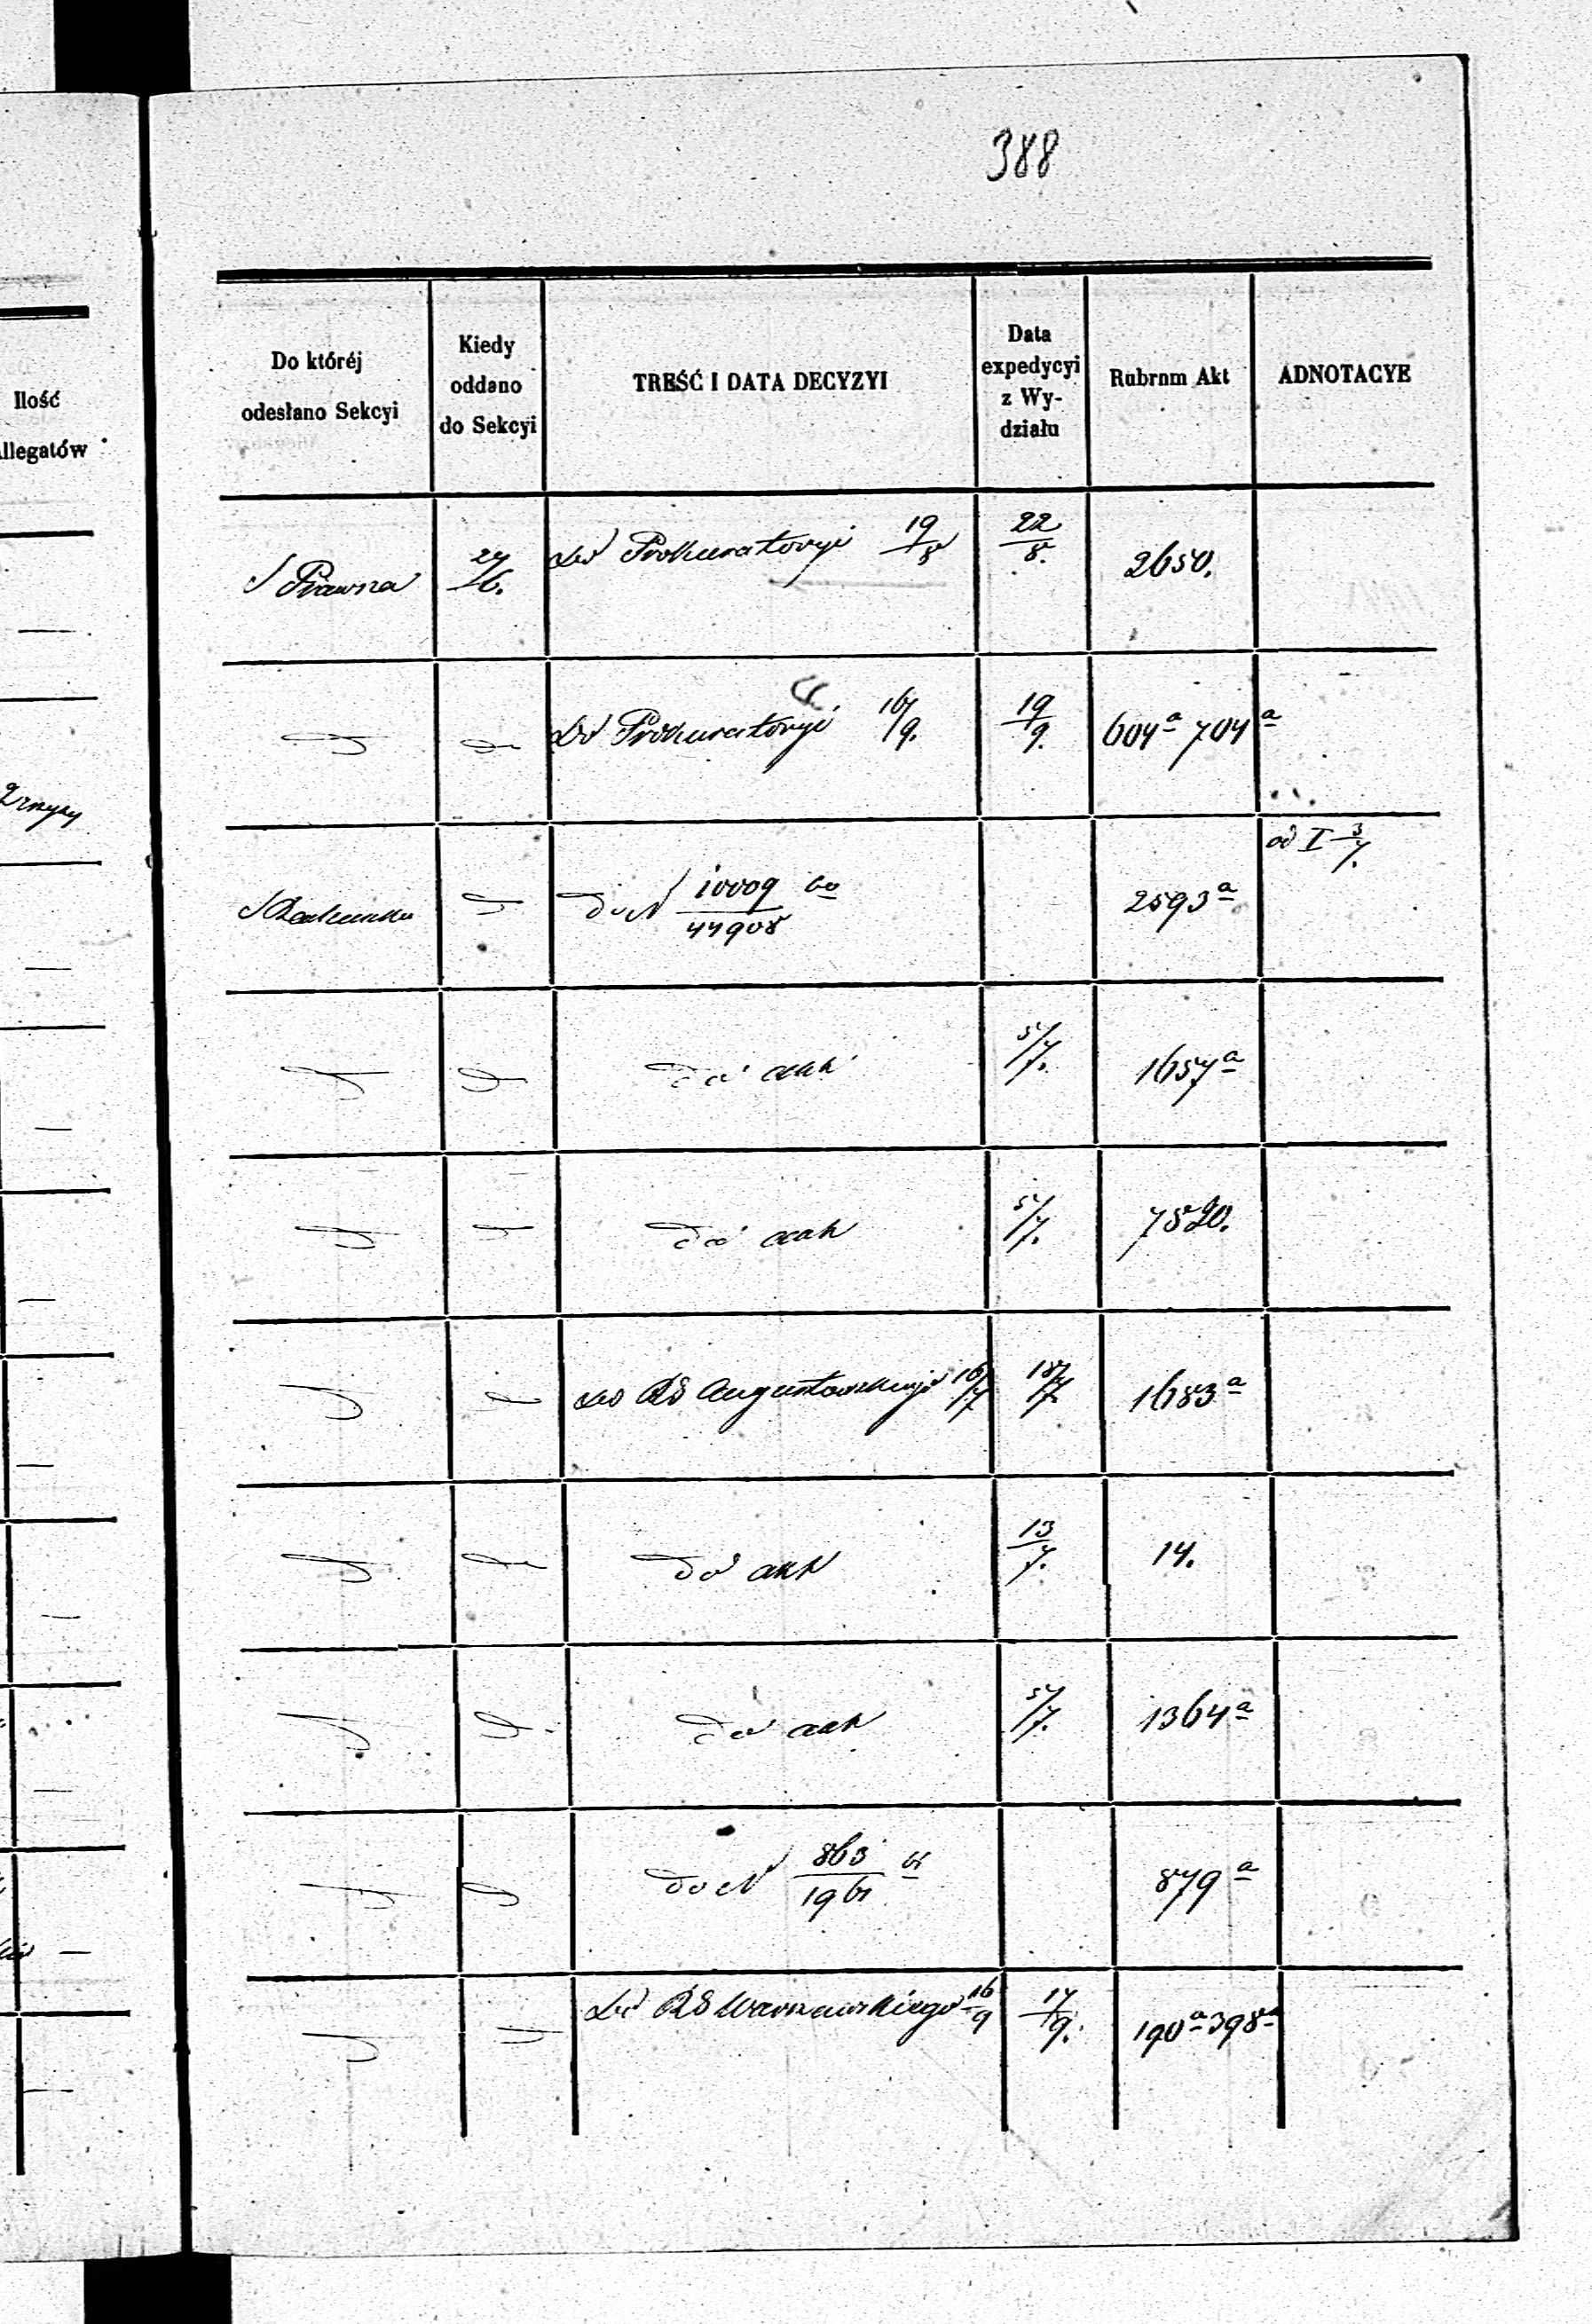 388
Ilość
llegatów
Do któréj
odesłano Sekcyi
Kiedy
oddano
do Sekcyi
TREŚĆ I DATA DECYZYI
Data
expedycyi
z Wy-
działu
Rubrum Akt
ADNOTACYE
S Prawna 27/6. do Prokuratoryi 19/8 22/8. 2650.
do Prokuratoryi 16/9. 19/9. 604a 704a
od I 3/7.
do N 10009/44908 2593a
do akt 5/7. 1657a
do akt 5/7. 7520.
do RG Augustowskiego 16/7 18/7 1683a
do akt 13/7. 14.
do akt 5/7. 1364a
do N 863/1961 879a
do RG Warszawskiego 16/9 17/9. 190a 398a